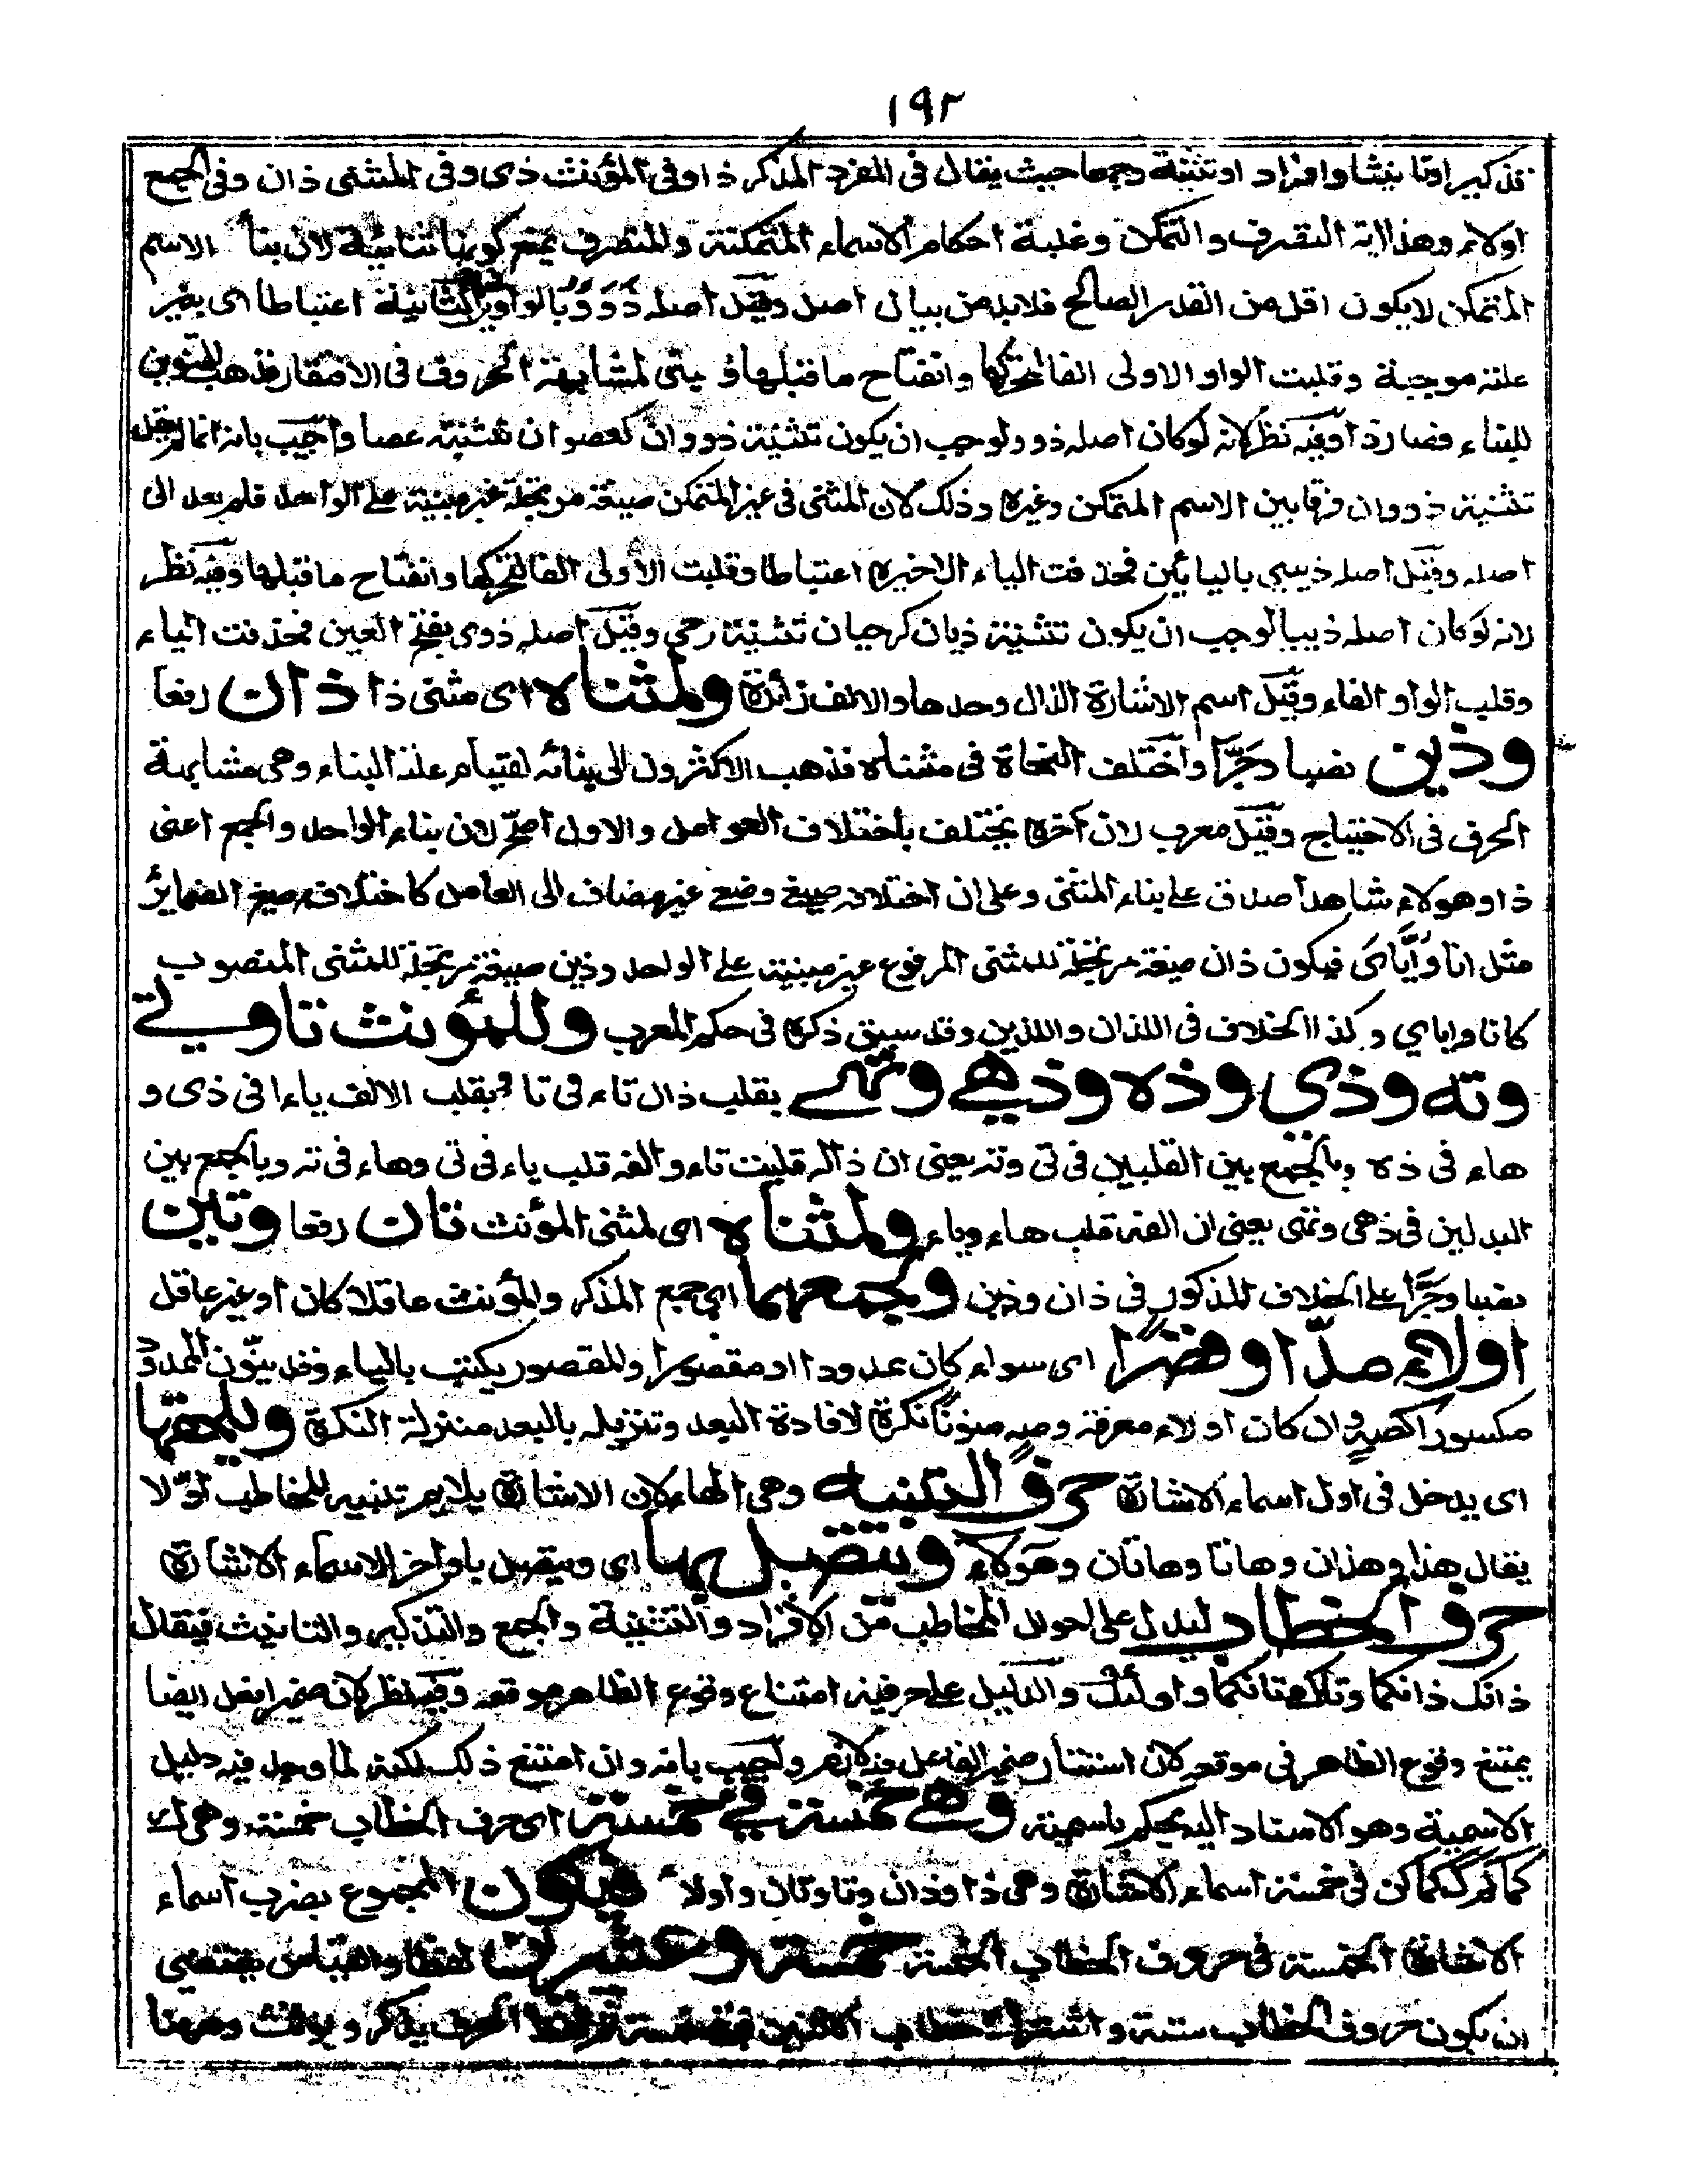 ١٩٢
تذكيرا وتانيثا وافراد او تثنية وجمعا حيث يقال فى المفرد المذكر ذا وفى المؤنث ذى وفى المثنى ذان وفى الجمع
اولاء وهذا اية التصرف والتمكن وغلبة احكام الاسماء المتمكنة والمتصرف يمنع كونها ثنائية لان بناء الاسم
المتمكن لا يكون اقل من القدر الصالح فلابد من بيان اصل وقيل اصله ذَوَوٌ بالواوين الثانية اعتباطا اى بغير
علة موجبة وقلبت الواو الاولى الفا لتحركها وانفتاح ما قبلها و بنى لمشابهة الحروف فى الافتقار فذهب التنوين
للبناء فصار ذا وفيه نظر لانه لو كان اصله ذوو لوجب ان يكون تثنية ذووان كعصوان تثنية عصا واجيب بانه انما لم يقل
تثنية ذووان فرقا بين الاسم المتمكن وغيره وذلك لان المثنى فى غير المتمكن صيغة مرتجلة غير مبنية على الواحد فلم يعد الى
اصله وقيل اصله ذيبي باليائين فحذفت الياء الاخيرة اعتباطا وقلبت الاولى الفا لتحركها وانفتاح ما قبلها وفيه نظر
لانه لو كان اصله ذييا لوجب ان يكون تثنية ذيان كرحيان تثنية رحى وقيل اصله ذوى بفتح العين فحذفت الياء
وقلب الواو الفاء وقيل اسم الاشارة الذال وحدها والالف زائدة ولمثناه اى مثنى ذا ذان رفعا
وذين نصبا وجرًّا واختلف النحاة فى مثناه فذهب الاكثرون الى بنائه لقيام علة البناء وهى مشابهة
الحرف فى الاحتياج وقيل معرب لان آخره يختلف باختلاف العوامل والاول اصح لان بناء الواحد والجمع اعنى
ذا وهولاء شاهد اصدق على بناء المثنى وعلى ان اختلافه صيغ وضع غير مضاف الى العامل كاختلاف صيغ الضماير
مثل انا وايّاىَ فيكون ذان صيغة مرتجلة للمثنى المرفوع غير مبنية على الواحد وذين صيغة مرتجلة للمثنى المنصوب
كانا واياي وكذا الخلاف فى اللذان واللذين وقد سبق ذكره فى حكم المعرب وللمؤنث تا وتي
وته وذي وذه وذهي وتهي بقلب ذال تاء فى تا وبقلب الالف ياءا فى ذى و
هاء فى ذه وبالجمع بين القلبين فى تى وته يعنى ان ذاله قلبت تاء والفه قلب ياء فى تى وهاء فى ته وبالجمع بين
البدلين فى ذهى وتهى يعنى ان الفه قلب هاء وياء ولمثناه اى لمثنى المؤنث تان رفعا وتين
نصبا وجرًّا على الخلاف المذكور فى ذان وذين ولجمعهما اى جمع المذكر والمؤنث عاقلا كان او غير عاقل
اولاء مدّا وقصرًا اى سواء كان ممدودا او مقصورا والمقصور يكتب بالياء وقد ينوّن الممدود
مكسورا كصهٍ وان كان اولاء معرفة وصه منونًا نكرة لافادة البعد وتنزيله بالبعد منزلة النكرة ويلحقها
اى يدخل فى اول اسماء الاشارة حرف التنبيه وهى الهاء لان الاشارة يلايم تنبيه المخاطب اوّلا
يقال هذا وهذان وهاتا وهاتان وهؤلاء ويتصل بها اى ويتصل باواخر الاسماء الاشارة
حرف الخطاب ليدل على احوال المخاطب من الافراد والتثنية والجمع والتذكير والتانيث فيقال
ذانك ذانكما وتاك وتانكما واولئك والدليل على حرفية امتناع وقوع الظاهر موقعه وفيه نظر لان ضمير افعل ايضا
يمتنع وقوع الظاهر فى موقعه لان استتار ضمير الفاعل فيه لازم واجيب بانه وان امتنع ذلك لكنه لما وجد فيه دليل
الاسمية وهو الاسناد اليه يحكم باسميته وهي خمسة في خمسة اى حرف الخطاب خمسة وهى ك
كما كم ك كما كن فى خمسة اسماء الاشارة وهى ذا وذان وتا وتان واولاء فيكون المجموع بضرب اسماء
الاشارة الخمسة فى حروف الخطاب الخمسة خمسة وعشرين لفظا والقياس يقتضى
ان يكون حروف الخطاب ستة و اشتراك خطاب الاثنين الحرف يذكر و يؤنث وههنا